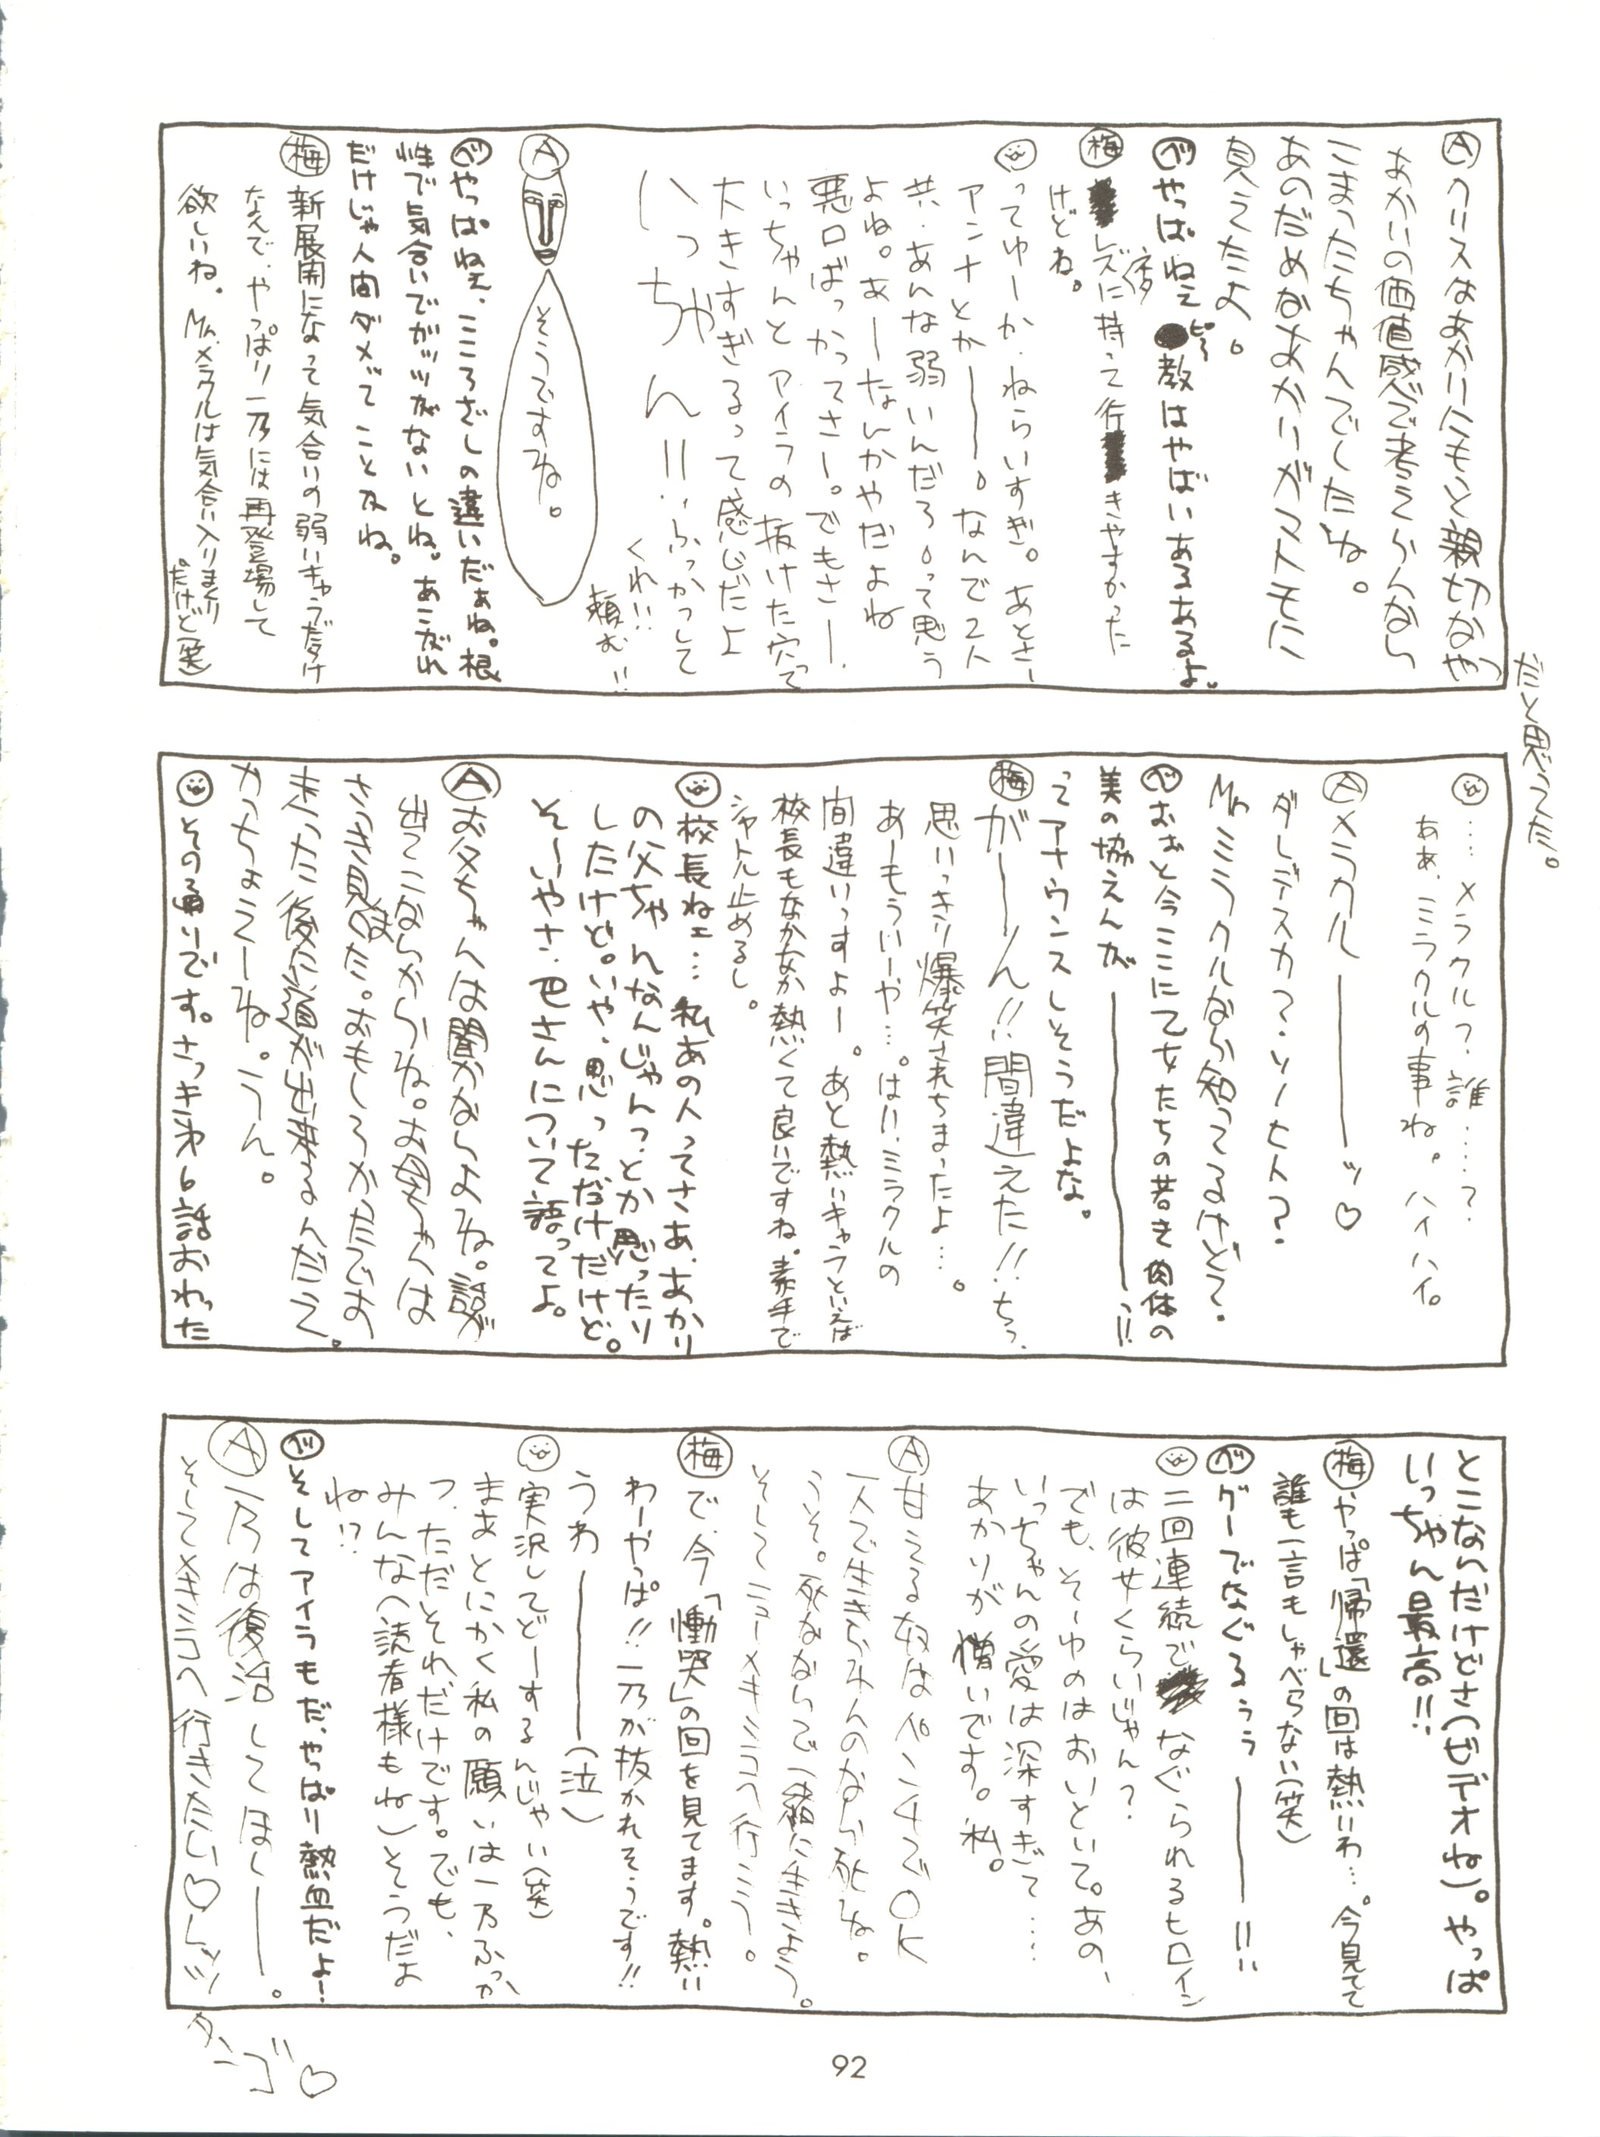 Ⓐクリスはあかりにもっと親切なやつ
だと思ってた。
あかいの価値感で考えらんなら
こまったちゃんでしたね。
あのだめなあかりがマトモに
見えたよ。
べやっばねえ●教はやばいあるあるよ。
ピー
梅レズにネタ持って行きやすかった
けどね。
ってゆーか、ねらいすぎ。あとさー
アンナとかー。なんで2人
共、あんな弱いんだろ。って思う
よね。あーなんかやだよね
悪口ばっかってさー。でもさー、
いっちゃんとアイラの抜けた穴って
大きすぎるって感じだよ
いっちゃん!!ふっかつして
くれ!!頼む!!
Ⓐ
そうですね。
べやっぱねェ、こころざしの違いだぁね。根
性で気合いでガッツがないとね。あこがれ
だけじゃ人間ダメってこと及ね。
梅新展開になって気合いの弱いキャラだらけ
なんで、やっぱり一乃には再登場して
欲しいね。Mr.メラクルは気合い入りまくり
だけど(笑)
‥‥メラクル?誰‥‥?
ああ、ミラクルの事ね。ハイハイ。
Ⓐメラカルーッ♡
ダレデスカ?ソノヒト?
Mr.ミラクルなら知ってるけど?
べおおと今ここに乙女たちの若き肉体の
美の協えんがーっ!!
ってアナウンスしそうだよな。
梅がーん!!間違えた!!ちっ、
思いっきり爆笑されちまったよ…。
あーもういーや…。はい、ミラクルの
間違いっすよー。あと熱いキャラといえば
校長もなかなか熱くて良いですね。素手で
シャトル止めるし。
校長ねェ…私あの人ってさあ、あかり
の父ちゃんなんじゃんっとか思ったり
したけど。いや、思っただけだけど。
そーいやさ、巴さんについて語ってよ。
Ⓐお父ちゃんは聞かないよね。話が
出てこないからね。お母ちゃんは
さっき見てた。おもしろかたではま
まった後に道が出来るんだって。
かっちょえーね。うん。
その通りです。さっき第6話おわった
とこなんだけどさ(ビデオね)。やっぱ
いっちゃん最高!!
梅やっぱ「帰還」の回は熱いわ…。今見てて
誰も一言もしゃべらない(笑)
べグーでなぐるぅぅー!!
二回連続でなぐられるヒロイン
は彼女くらいじゃん?
でも、そーゆのはおいといて。あの、
いっちゃんの愛は深すぎて…
あかりが憎いです。私。
Ⓐ甘える奴はパンチでOK
一人で生きらんのなら死ね。
うそ。死なないで一緒に生きよう。
そしてニューメキシコへ行こう。
梅で、今「慟哭」の回を見てます。熱い
わーやっぱ!!一乃が抜かれそうです!!
うわー(泣)
実況してどーするんじゃい(笑)
まあとにかく私の願いは一乃ふっか
つ、ただそれだけです。でも、
みんな(読者様もね)そうだよ
ね!?
べそしてアイラもだ、やっぱり熱血だよ!
Ⓐ一乃は復活してほしー。
そしてメキシコへ行きたい♡レッツ
タンゴ♡
92